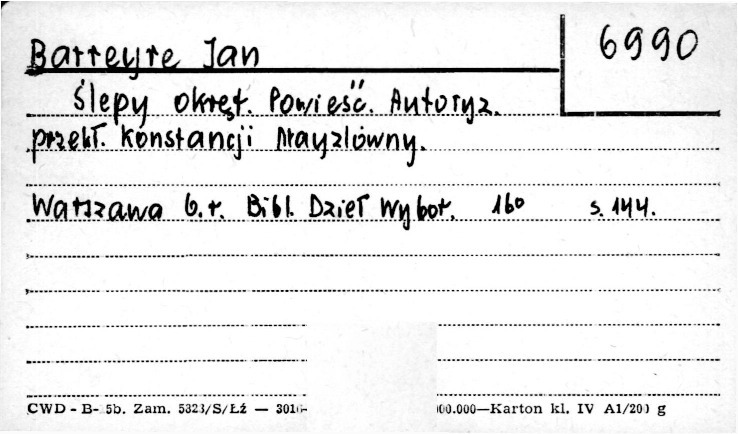 Barreyre Jan
6990
Ślepy okręt. Powieść. Autoryz.
przekł. Konstancji Mayzlówny.
Warszawa b.r. Bibl. Dzieł Wybor. 160 s. 144.
CWD - B- 5b. Zam. 5323/S/Łź — 301 00.000—Karton kl. IV A1/200 g